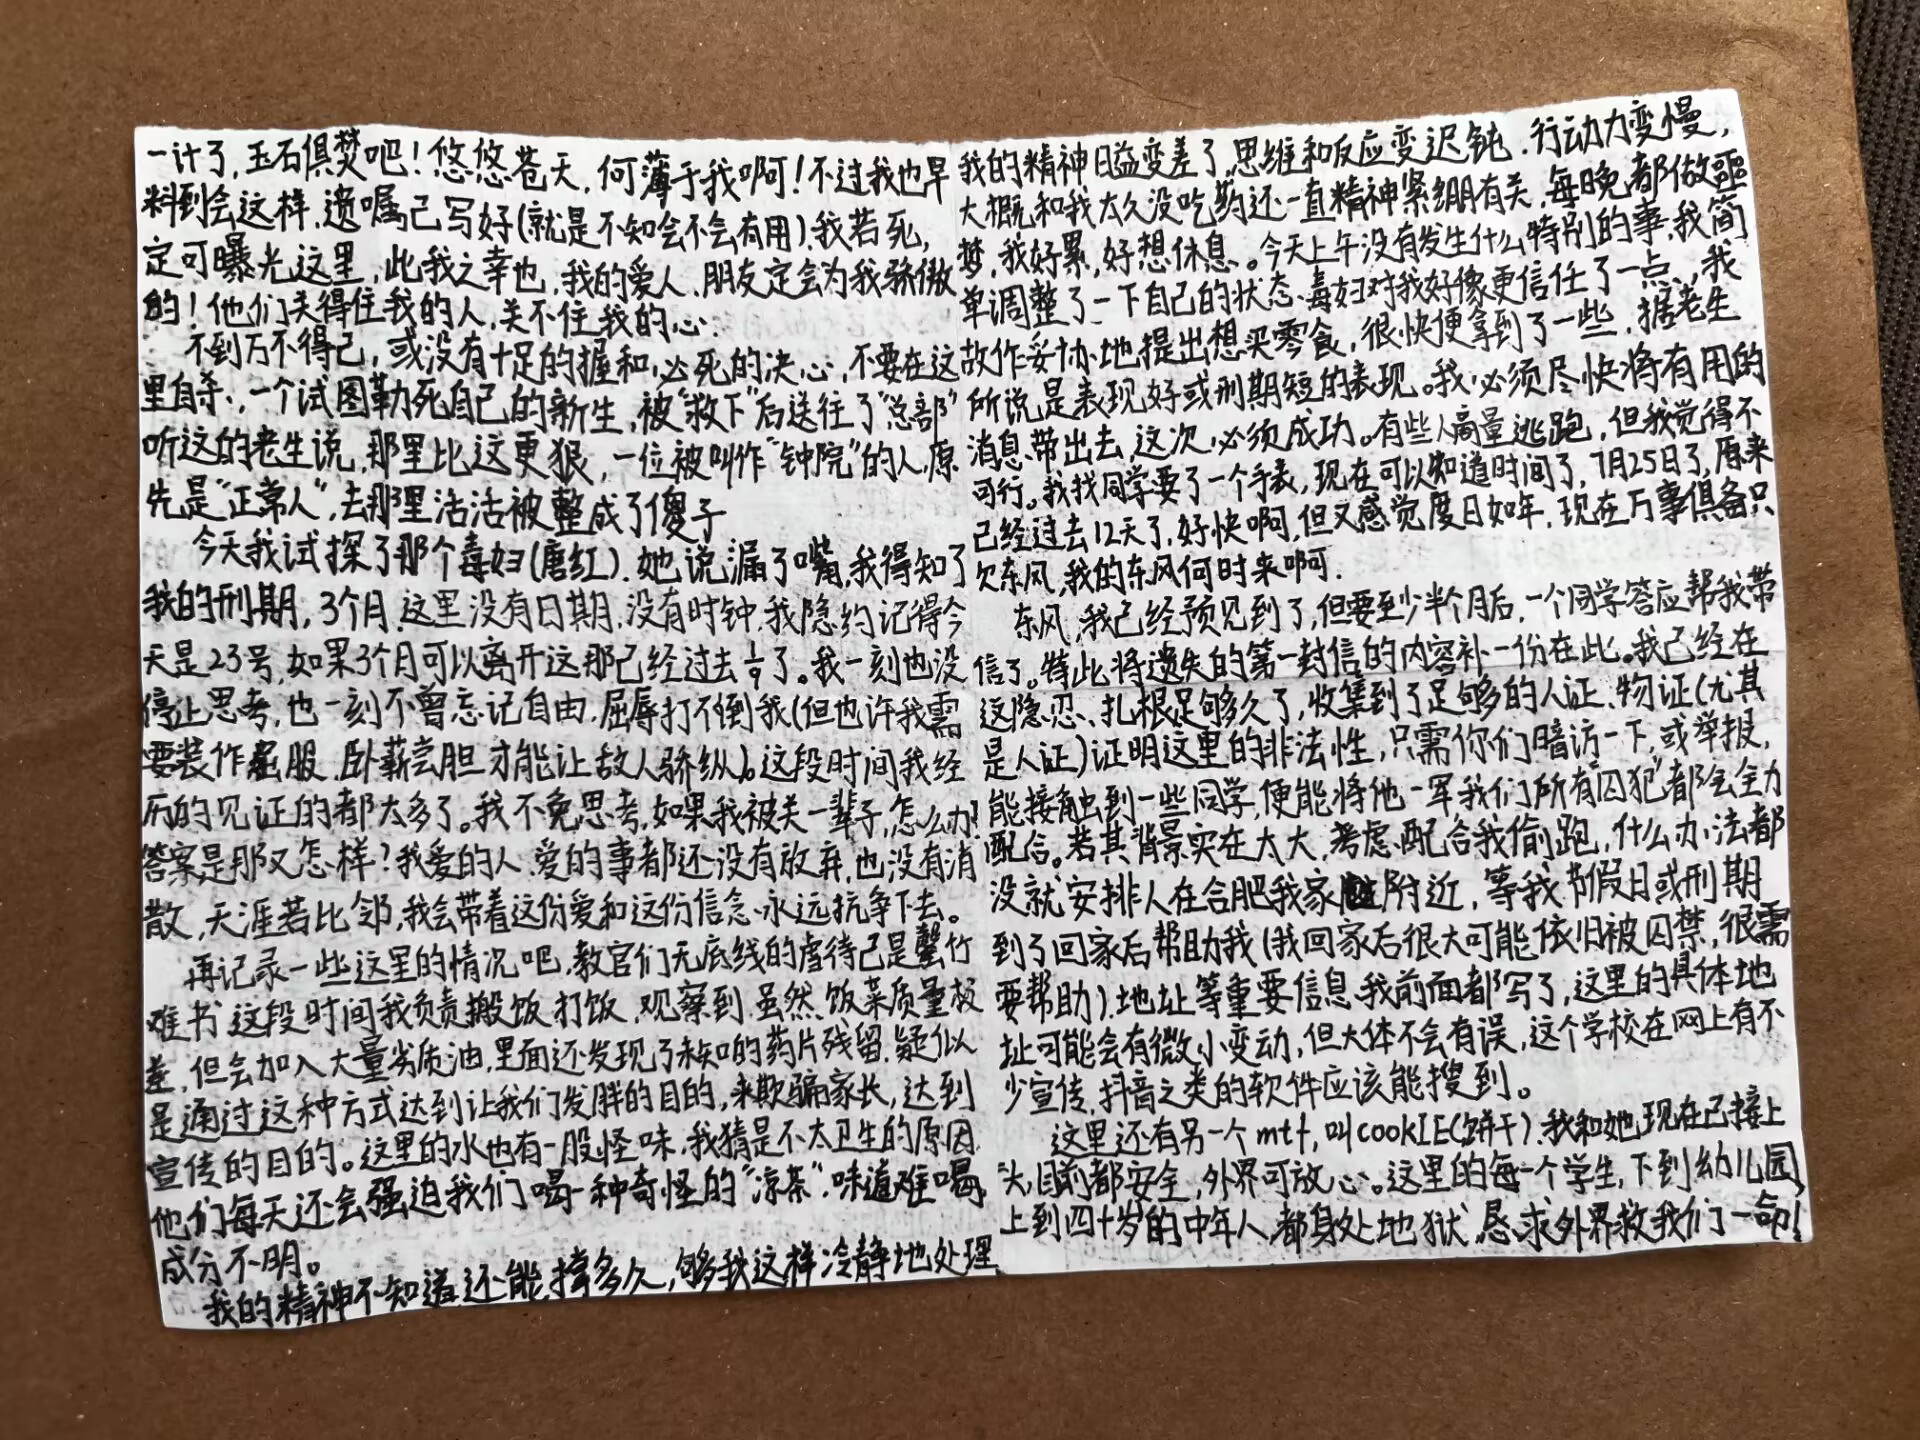 一计了，玉石俱焚吧！悠悠苍天，何薄于我啊！不过我也早
料到会这样，遗嘱已写好(就是不知会不会有用)，我若死，
定可曝光这里，此我之幸也，我的爱人、朋友定会为我骄傲
的！他们关得住我的人，关不住我的心。
不到万不得已，或没有十足的握和必死的决心，不要在这
里自杀，一个试图勒死自己的新生，被“救下”后送往了“总部”
听这的老生说，那里比这更狠，一位被叫作“钟院”的人，原
先是“正常人”，去那里活活被整成了傻子
今天我试探了那个毒妇(唐红)，她说漏了嘴，我得知了
我的刑期，3个月，这里没有日期，没有时钟，我隐约记得今
天是23号，如果3个月可以离开这那已经过去1/9了。我一刻也没
停止思考，也一刻不曾忘记自由，屈辱打不倒我(但也许我需
要装作屈服，卧薪尝胆才能让敌人骄纵)。这段时间我经
历的见证的都太多了。我不免思考，如果我被关一辈子，怎么办？
答案是那又怎样？我爱的人、爱的事都还没有放弃，也没有消
散，天涯若比邻，我会带着这份爱和这份信念永远抗争下去。
再记录一些这里的情况吧，教官们无底线的虐待已是罄竹
难书，这段时间我负责搬饭，打饭，观察到，虽然饭菜质量极
差，但会加入大量劣质油，里面还发现了未知的药片残留，疑似
是通过这种方式达到让我们发胖的目的，来欺骗家长，达到
宣传的目的。这里的水也有一股怪味，我猜是不太卫生的原因，
他们每天还会强迫我们喝一种奇怪的“凉茶”，味道难喝，
成分不明。
我的精神不知道还能撑多久，够我这样冷静地处理
我的精神日益变差了，思维和反应变迟钝，行动力变慢，
大概和我太久没吃药还一直精神紧绷有关，每晚都做噩
梦，我好累，好想休息。今天上午没有发生什么特别的事，我简
单调整了一下自己的状态、毒妇对我好像更信任了一点，我
故作妥协地提出想买零食，很快便拿到了一些，据老生
所说是表现好或刑期短的表现。我必须尽快将有用的
消息带出去，这次必须成功。有些人商量逃跑，但我觉得不
可行。我找同学要了一个手表，现在可以知道时间了，7月25日了，原来
已经过去12天了，好快啊，但又感觉度日如年，现在万事俱备只
欠东风，我的东风何时来啊。
东风，我已经预见到了，但要至少半个月后，一个同学答应帮我带
信了。特此将遗失的第一封信的内容补一份在此。我已经在
这隐忍、扎根足够久了，收集到了足够的人证、物证(尤其
是人证)证明这里的非法性，只需你们暗访一下，或举报，
能接触到一些同学，便能将他一军我们所有“囚犯”都会全力
配合。若其背景实在太大，考虑配合我偷跑，什么办法都
没就安排人在合肥我家附近，等我节假日或刑期
到了回家后帮助我(我回家后很大可能依旧被囚禁，很需
要帮助)。地址等重要信息我前面都写了，这里的具体地
址可能会有微小变动，但大体不会有误，这个学校在网上有不
少宣传，抖音之类的软件应该能搜到。
这里还有另一个mtf，叫COOKIE(饼干)，我和她现在已接上
头，目前都安全，外界可放心。这里的每一个学生，下到幼儿园，
上到四十岁的中年人，都身处地狱，恳求外界救我们一命！